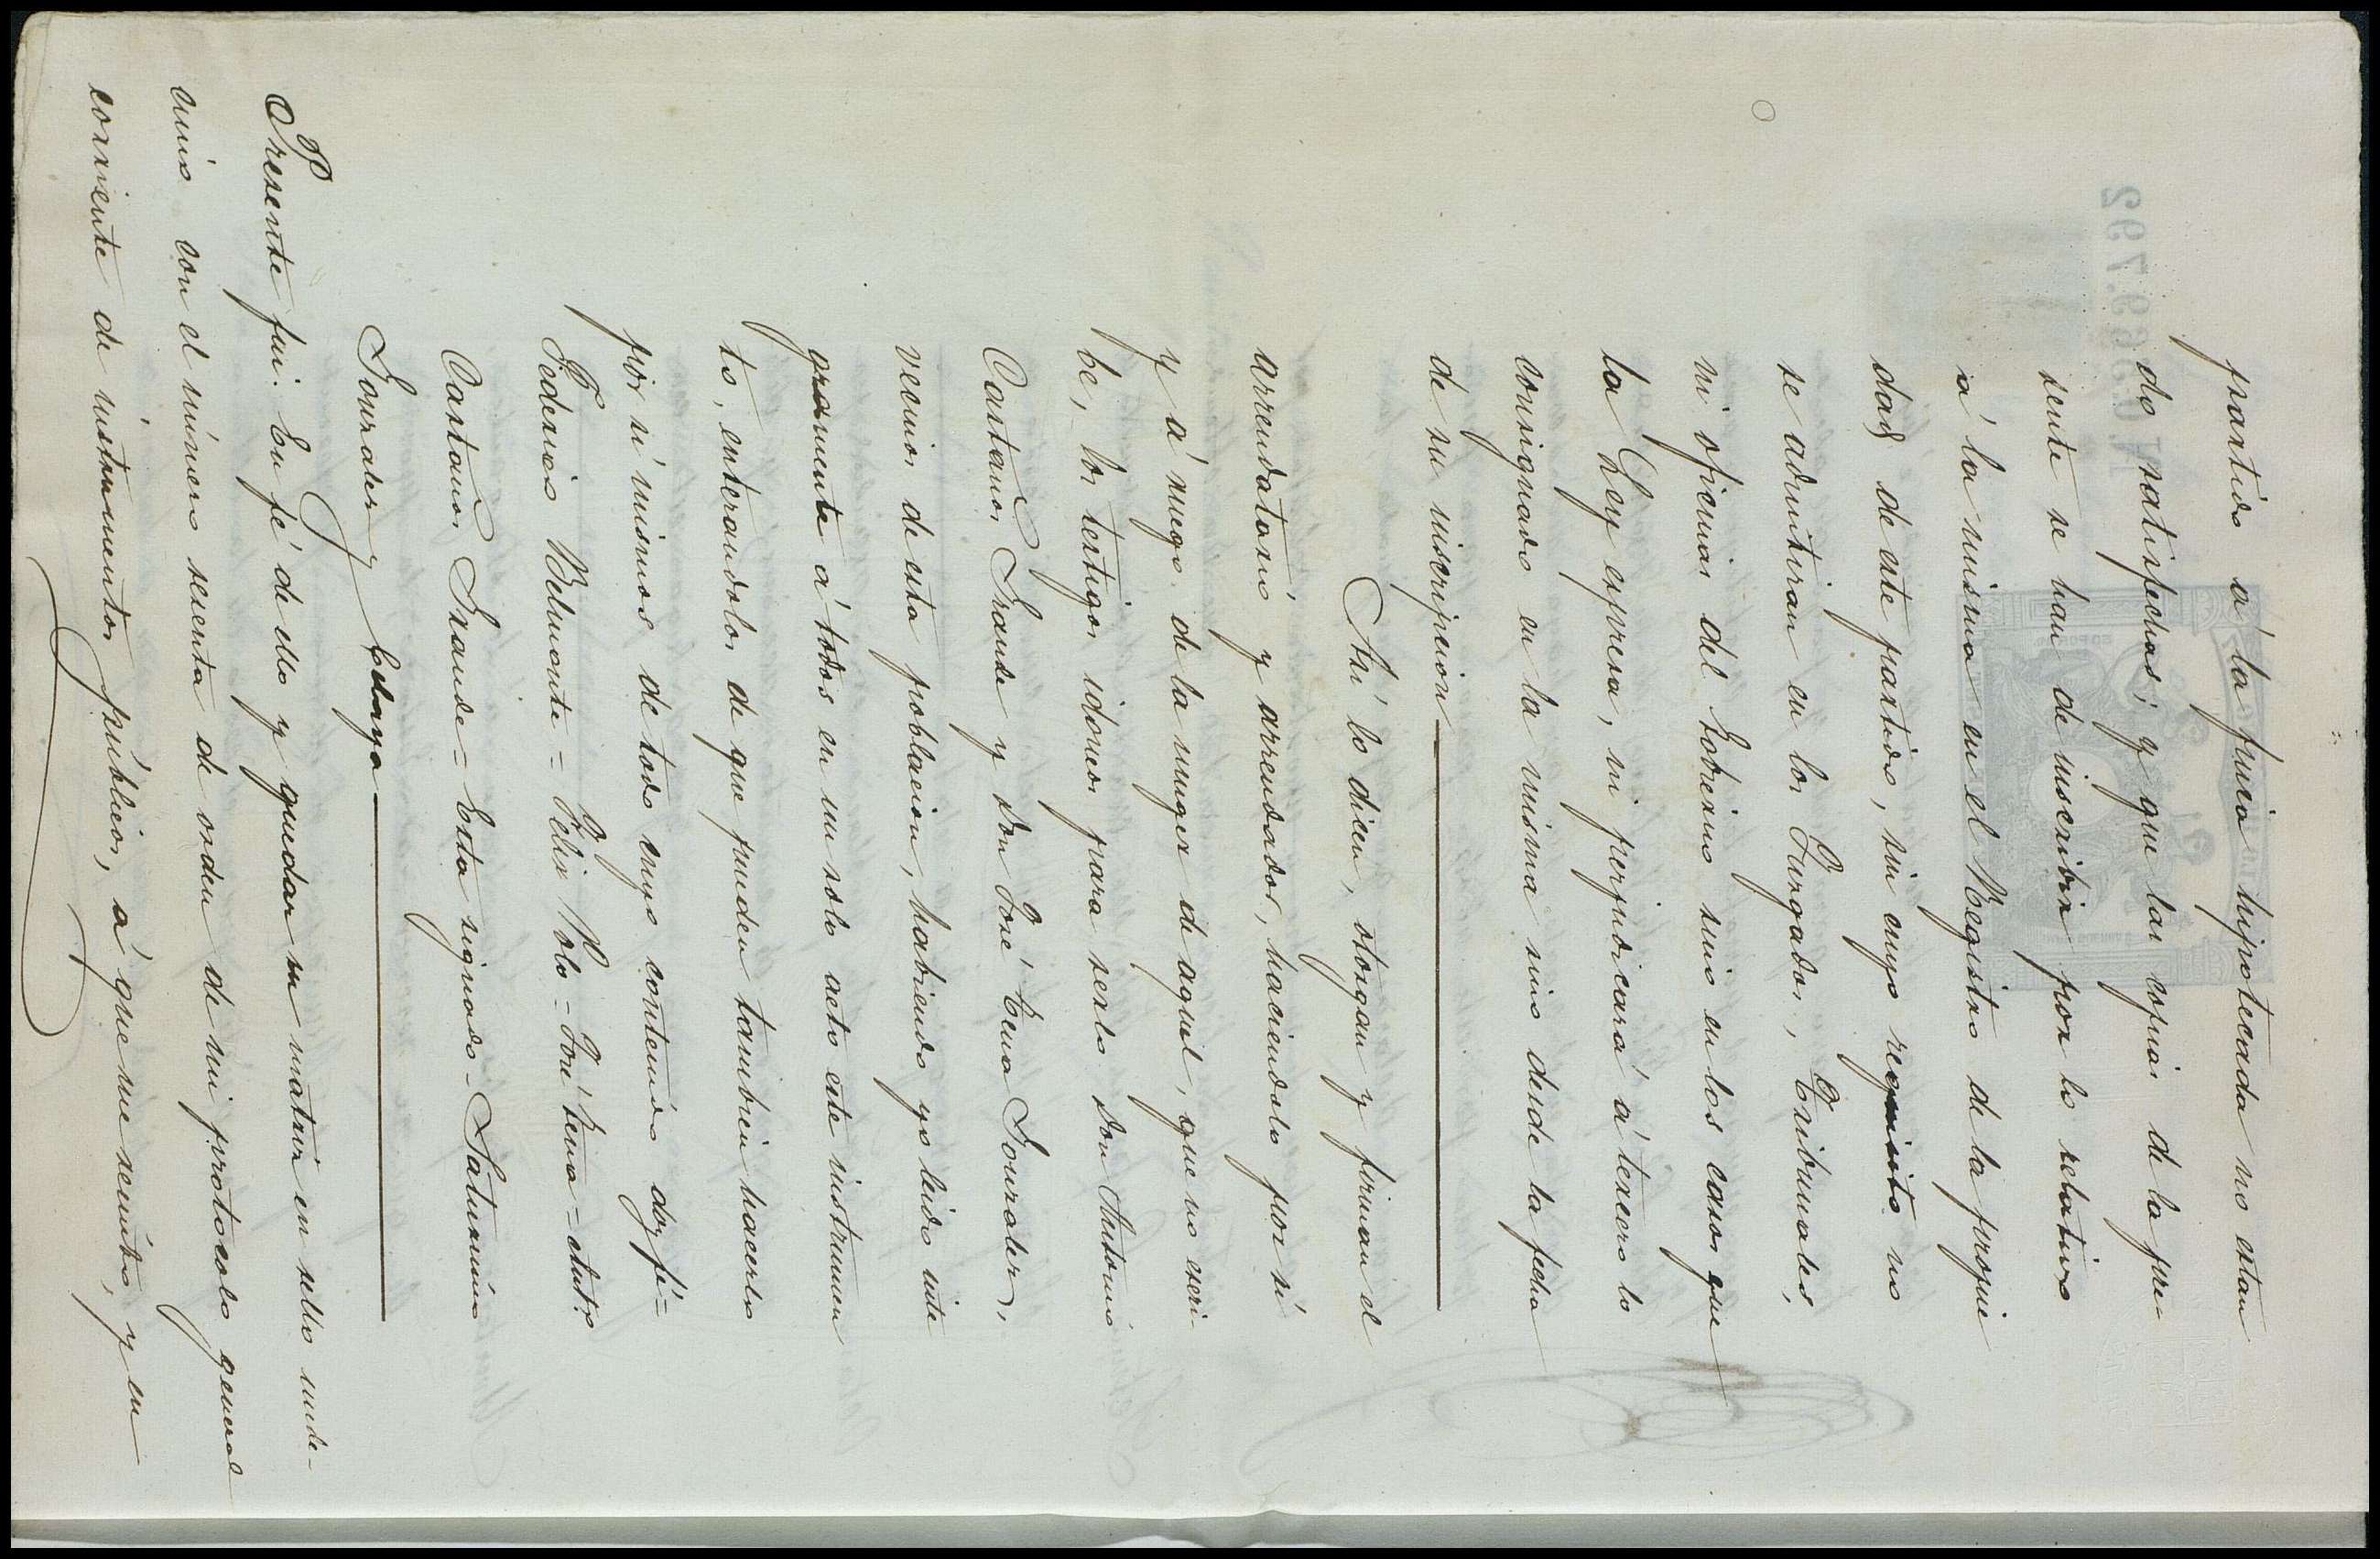 partido á la finca hipotecada no estan
do satisfechas; y que las copias de la pre-
sente se han de inscribir por lo relativo
á la misma en el Registro de la propie
dad de este partido, sin cuyo requisito no
se admitiran en los Juzgados, Tribunales,
ni oficinas del Gobierno sino en los casos que
la Ley espresa, ni perjudicará á tercero lo
consignado en la misma sino desde la fecha
de su inscripcion
Asi lo dicen, otorgan y firman el
arrendatario y arrendador, haciendolo por si
y á ruego de la muger de aquel, que no escri-
be, los testigos idoneos para serlo don Antonio
Castaños Grande y don José Cena Gonzalez,
vecinos de esta poblacion, habiendo yo leido inte
gramente á todos en un solo acto este instrumen
to, enterandolos de que pueden tambien hacerlo
por si mismos de todo cuyo contenido doy fé=
Federico Belmonte= Felix Polo= José Cena= Antº
Castaños Grande= Esta signado= Saturnino
Gonzalez Celaya
Presente fui. En fé de ello y quedar su matriz en sello unde-
cimo con el número sesenta de orden de mi protocolo general
corriente de instrumentos públicos, á que me remito, y en
N.0.586.792